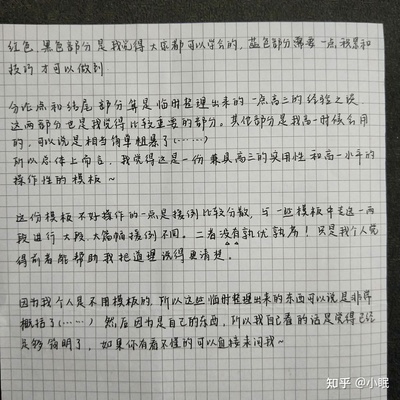 红色、黑色部分是我觉得大家都可以学会的，蓝色部分需要一点积累和
技巧才可以做到
分论点和结尾部分算是临时整理出来的一点高三的经验之谈，
这两部分也是我觉得比较重要的部分。其他部分是我高一时候会用
的，可以说是相当简单粗暴了(······)
所以总体上而言，我觉得这是一份兼具高三的实用性和高一水平的
操作性的模板~
这份模板不好操作的一点是援例比较分散，与一些模板中专选一两
段进行大段、大篇幅援例不同。二者没有孰优孰劣！只是我个人觉
得前者能帮助我把道理说得更清楚。
因为我个人是不用模板的，所以这些临时整理出来的东西可以说是非常
概括了(······) 然后因为是自己的东西，所以我自己看的话是觉得已经
足够简明了，如果你有看不懂的可以直接来问我~
知乎 @小眠